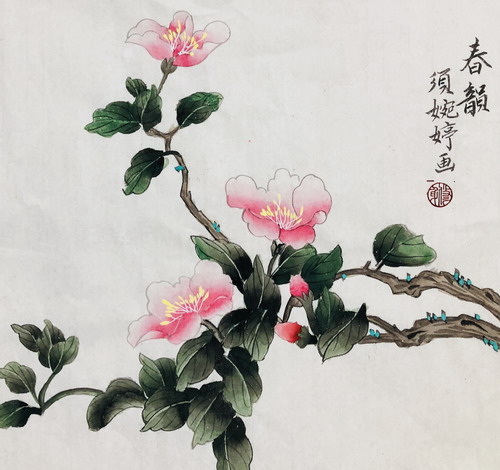 春韻
須婉婷画